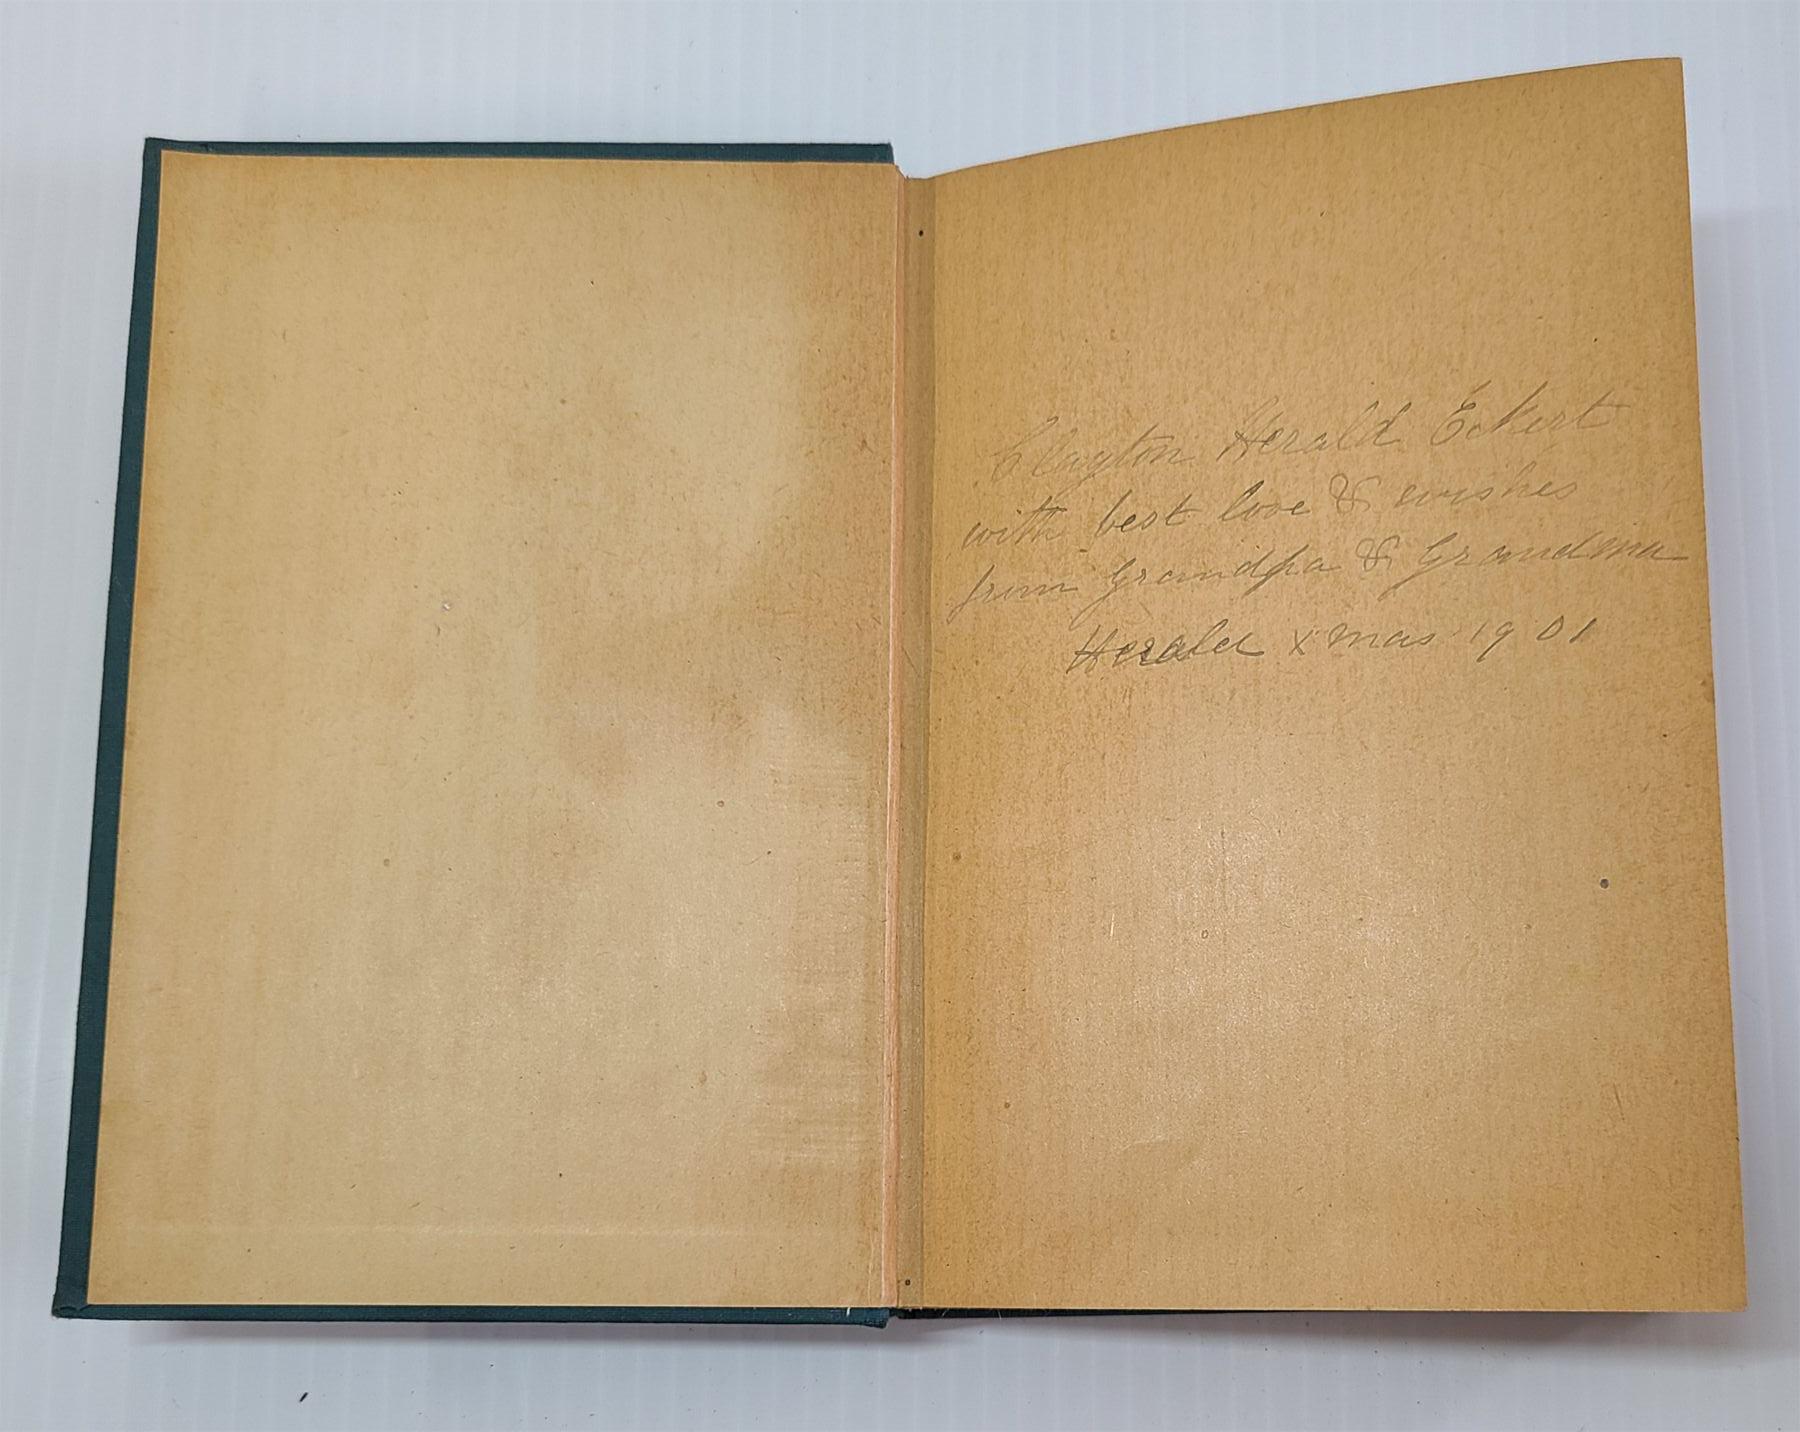 Clayton Herald Eckert
with best love & wishes
from Grandpa & Grandma
Herald Xmas 1901